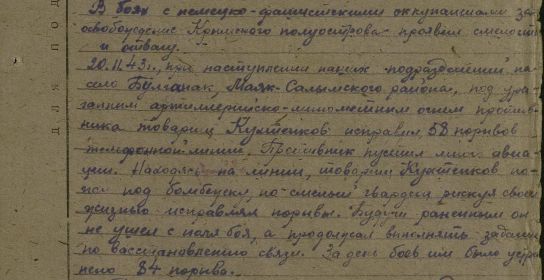 В боях с немецко-фашистскими оккупантами за
освобождение Крымского полуострова проявил смелость
и отвагу.
20.11.43г., при наступлении наших подразделений на
село Булганак, Маяк-Салынского района, под ура-
ганным артиллерийско-минометным огнем против-
ника товарищ Куктенков исправил 50 порывов
телефонной линии. Противник пустил много авиа-
ции. Находясь на линии, товарищ Куктенков по-
пал под бомбежку, но смелый гвардеец рискуя своей
жизнью исправлял порывы. Будучи раненным он
не ушел с поля боя, а продолжал выполнять задание
по восстановлению связи. За день боев им было устра
нено 84 порыва.
для под